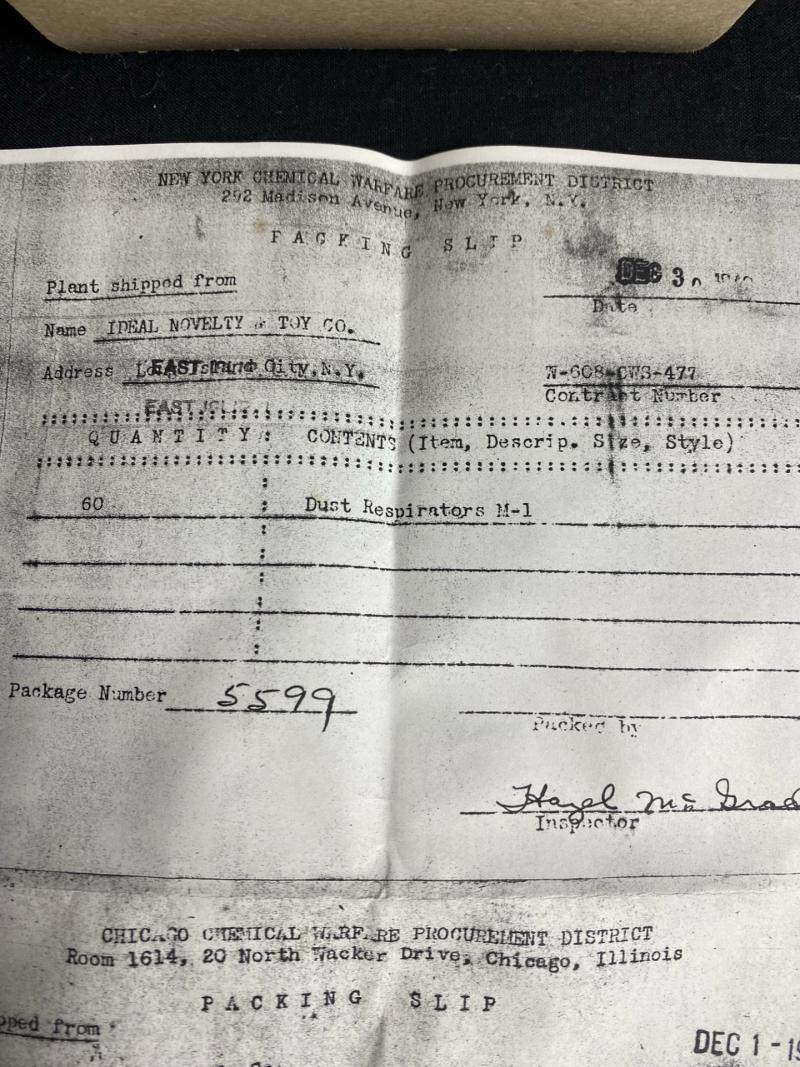 NEW YORK CHEMICAL WARFARE PROCUREMENT DISTRICT
292 Madison Avenue, New York, N.Y.
PACKING SLIP
Plant shipped from
DEC 3
Date
Name IDEAL NOVELTY & TOY CO.
Address EAST City, N.Y.
W-608-CWS-477
Contract Number
EAST
QUANTITY : CONTENTS (Item, Descrip. Size, Style)
60 : Dust Respirators M-1
Package Number 5599
Packed by
Hazel Mc Grad
Inspector
CHICAGO CHEMICAL WARFARE PROCUREMENT DISTRICT
Room 1614, 20 North Wacker Drive, Chicago, Illinois
PACKING SLIP
pped from
DEC 1 - 19